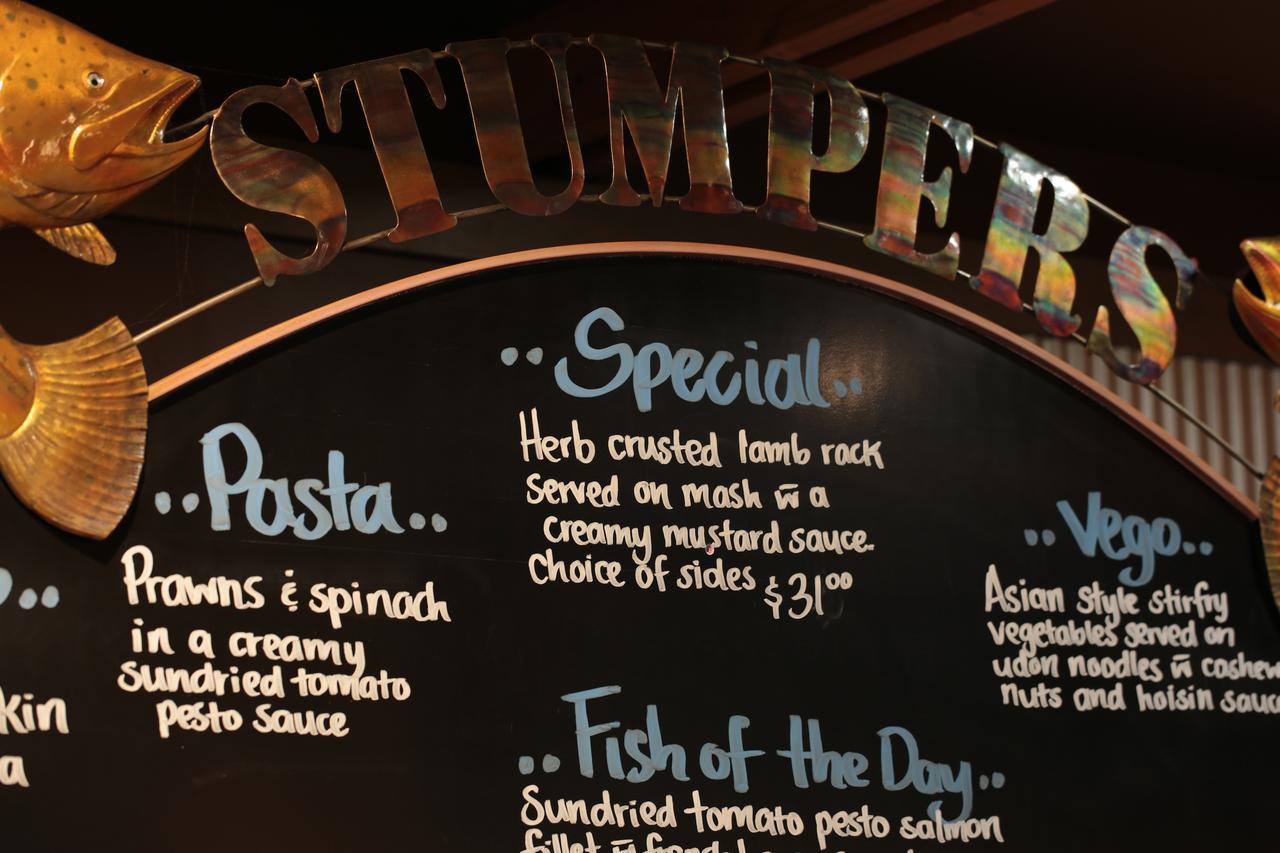 STUMPERS
..Special..
Herb crusted lamb rack
served on mash w̄ a
creamy mustard sauce.
Choice of sides $31⁰⁰
..Pasta..
Prawns & spinach
in a creamy
sundried tomato
pesto sauce
..Vego..
Asian style stirfry
vegetables served on
udon noodles w̄ cashew
nuts and hoisin sauc
..Fish of the Day..
Sundried tomato pesto salmon
fillet w̄
kin
a